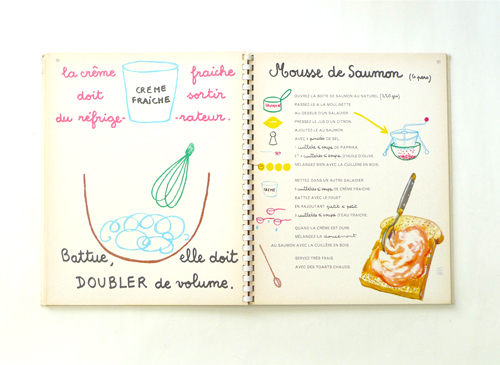 la crême fraîche
doit sortir
du réfrige- -rateur.
CREME
FRAÎCHE
Battue, elle doit
DOUBLER de volume.
Mousse de Saumon (6 pers)
OUVREZ LA BOITE DE SAUMON AU NATUREL
PASSEZ-LE A LA MOULINETTE
AU DESSUS D'UN SALADIER
PRESSEZ LE JUS D'UN CITRON.
AJOUTEZ-LE AU SAUMON
AVEC 1 pincée DE SEL
1 cuillère à soupe DE PAPRIKA
ET 6 cuillères à soupe D'HUILE D'OLIVE.
MÉLANGEZ BIEN AVEC LA CUILLÈRE EN BOIS.
METTEZ DANS UN AUTRE SALADIER
cuillères à soupe DE CRÈME FRAICHE
BATTEZ AVEC LE FOUET
EN RAJOUTANT petit à petit
cuillères à soupe D'EAU FRAICHE.
QUAND LA CRÈME EST
MÉLANGEZ-LA doucement
AU SAUMON AVEC LA CUILLÈRE EN BOIS.
SERVEZ TRÈS FRAIS
AVEC DES TOASTS CHAUDS.
CREME